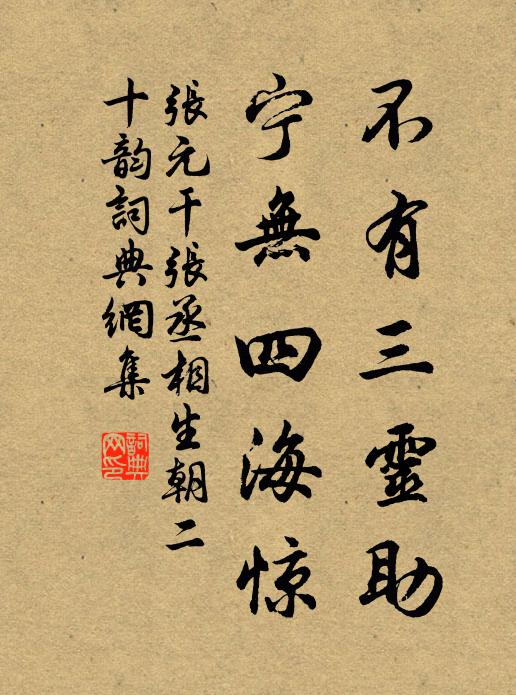 不有三靈助
宁無四海惊
張元干張丞相生朝二
十韵詞典網集
詞典网印